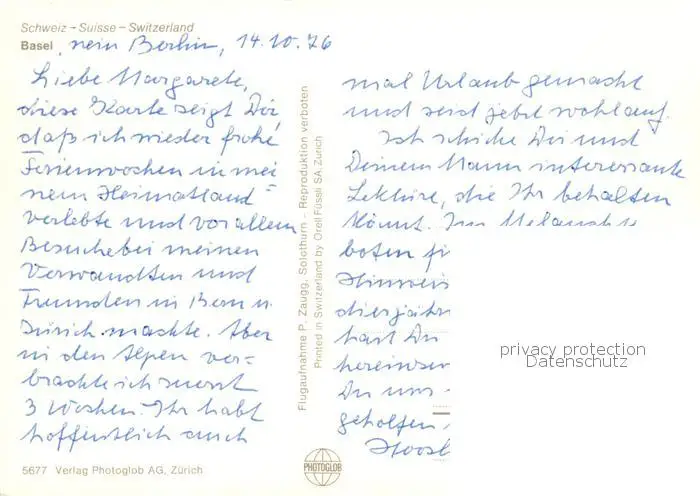 Schweiz – Suisse – Switzerland
Basel, nein Berlin, 14.10.76
Liebe Margarete,
diese Karte zeigt Dir,
daß ich wieder frohe
Ferienwochen in mei
nem Heimatland
verlebte und vor allem
Besuche bei meinen
Verwandten und
Freunden in Bern u.
Zürich machte. Aber
in den Alpen ver=
brachte ich zuerst
3 Wochen. Ihr habt
hoffentlich auch
5677 Verlag Photoglob AG, Zürich
Flugaufnahme P. Zaugg, Solothurn – Reproduktion verboten
Printed in Switzerland by Orell Füssli SA, Zürich
PHOTOGLOB
mal Urlaub gemacht
und seid jetzt wohlauf.
Ich schicke Dir und
Deinem Mann interessante
Lektüre, die Ihr behalten
könnt. Im
boten
Hinweis
diesjähr
hast Du
Du uns
geholfen
privacy protection
Datenschutz